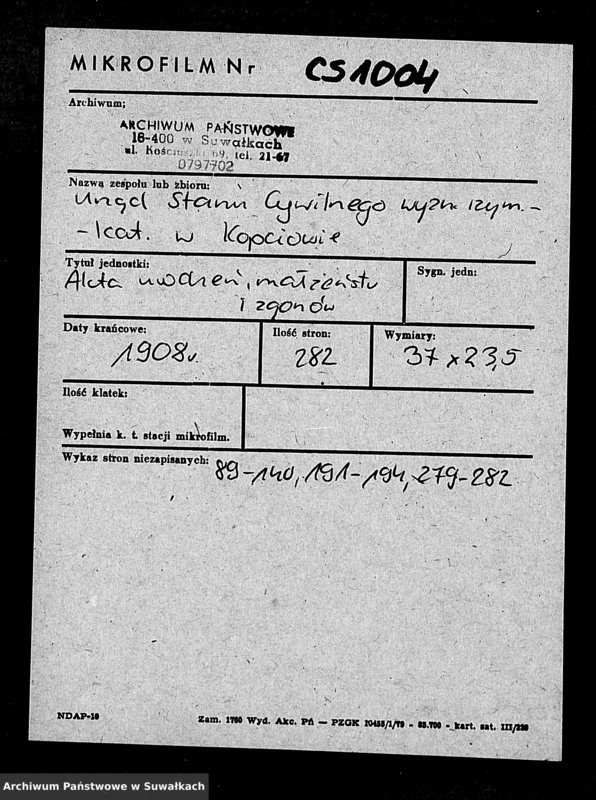 MIKROFILM Nr CS1004
Archiwum;
ARCHIWUM PAŃSTWOWE
16-400 w Suwałkach
ul. Kościuszki 69, tel. 21-67
0797702
Nazwa zespołu lub zbioru:
Urząd Stanu Cywilnego wyzn. rzym.-
-kat. w Kopciowie
Tytuł jednostki:
Akta urodzeń, małżeństw
i zgonów
Sygn. jedn:
Daty krańcowe:
1908r.
Ilość stron:
282
Wymiary:
37 x 23,5
Ilość klatek:
Wypełnia k. t. stacji mikrofilm.
Wykaz stron niezapisanych:
89-140, 191-194, 279-282
NDAP-10
Zam. 1760 Wyd. Akc. Pń — PZGK 10455/1/79 - 85.700 - kart. sat. III/220
Archiwum Państwowe w Suwałkach